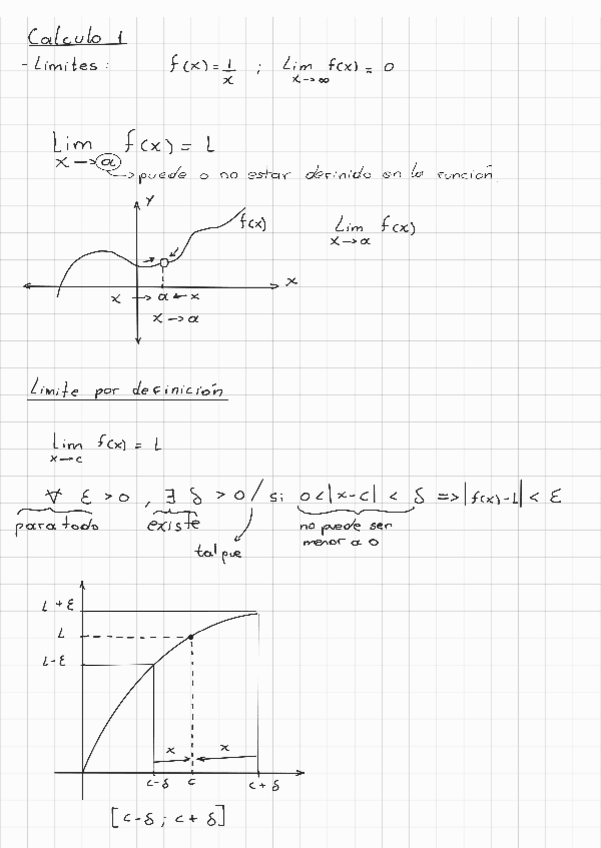 Calculo 1
- Limites: f(x) = 1/x ; Lim x→∞ f(x) = 0
Lim x→a f(x) = L
→ puede o no estar definido en la función
y
f(x)
Lim x→a f(x)
x
x → a ← x
x → a
Limite por definición
Lim x→c f(x) = L
∀ ε > 0 , ∃ δ > 0 / si 0 < |x-c| < δ => |f(x)-L| < ε
para todo existe no puede ser
menor a 0
tal que
L + ε
L
L-ε
x x
c-δ c c+δ
[c-δ ; c+δ]